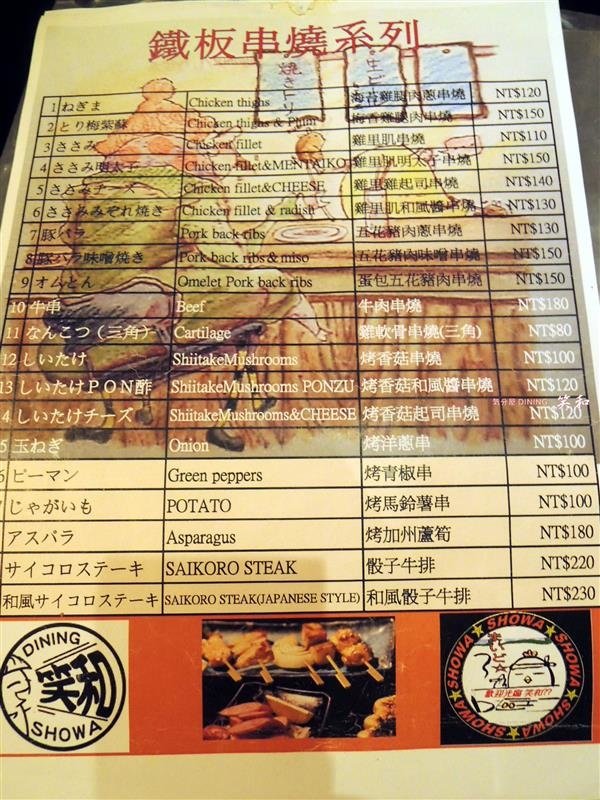 鐵板串燒系列
1 ねぎま Chicken thighs 海苔雞腿肉蔥串燒 NT$120
2 とり梅紫蘇 Chicken thighs & Plum 梅香雞腿肉串燒 NT$150
3 ささみ Chicken fillet 雞里肌串燒 NT$110
4 ささみ明太子 Chicken fillet&MENTAIKO 雞里肌明太子串燒 NT$150
5 ささみチーズ Chicken fillet&CHEESE 雞里雞起司串燒 NT$140
6 ささみみぞれ焼き Chicken fillet & radish 雞里肌和風醬串燒 NT$130
7 豚バラ Pork back ribs 五花豬肉蔥串燒 NT$130
8 豚バラ味噌焼き Pork back ribs & miso 五花豬肉味噌串燒 NT$150
9 オムとん Omelet Pork back ribs 蛋包五花豬肉串燒 NT$150
10 牛串 Beef 牛肉串燒 NT$180
11 なんこつ（三角） Cartilage 雞軟骨串燒(三角) NT$80
12 しいたけ ShiitakeMushrooms 烤香菇串燒 NT$100
13 しいたけＰＯＮ酢 ShiitakeMushrooms PONZU 烤香菇和風醬串燒 NT$120
4 しいたけチーズ ShiitakeMushrooms&CHEESE 烤香菇起司串燒 NT$120
気分屋 DINING 笑和
5 玉ねぎ Onion 烤洋蔥串 NT$100
6 ピーマン Green peppers 烤青椒串 NT$100
じゃがいも POTATO 烤馬鈴薯串 NT$100
アスパラ Asparagus 烤加州蘆筍 NT$180
サイコロステーキ SAIKORO STEAK 骰子牛排 NT$220
和風サイコロステーキ SAIKORO STEAK(JAPANESE STYLE) 和風骰子牛排 NT$230
DINING
笑和
SHOWA
SHOWA★SHOWA★SHOWA★SHOWA★SHOWA
歡迎光臨 笑和??